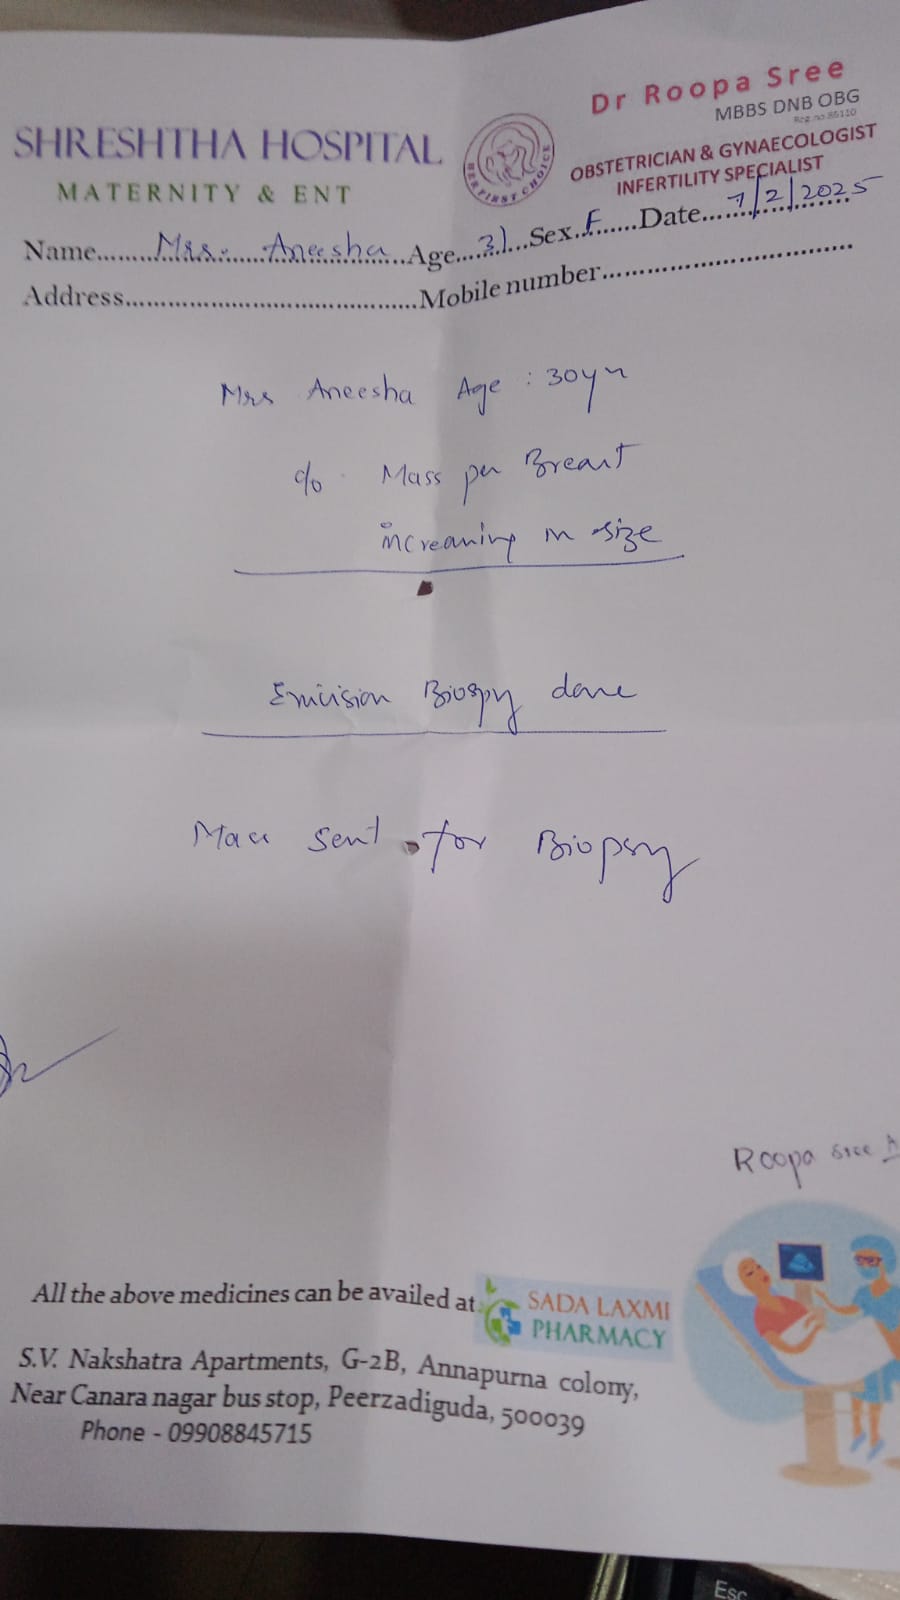 Dr Roopa Sree
MBBS DNB OBG
Reg.no.86110
SHRESHTHA HOSPITAL
MATERNITY & ENT
HER FIRST CHOICE
OBSTETRICIAN & GYNAECOLOGIST
INFERTILITY SPECIALIST
Name........Mrs. Aneesha...Age...31...Sex.F......Date...7/2/2025
Address..........................................Mobile number...................................
Mrs Aneesha Age : 30yr
c/o Mass per Breast
increasing in size
Excision Biospy done
Mass sent for Biopsy
Roopa Sree
All the above medicines can be availed at
SADA LAXMI
PHARMACY
S.V. Nakshatra Apartments, G-2B, Annapurna colony,
Near Canara nagar bus stop, Peerzadiguda, 500039
Phone - 09908845715
Esc